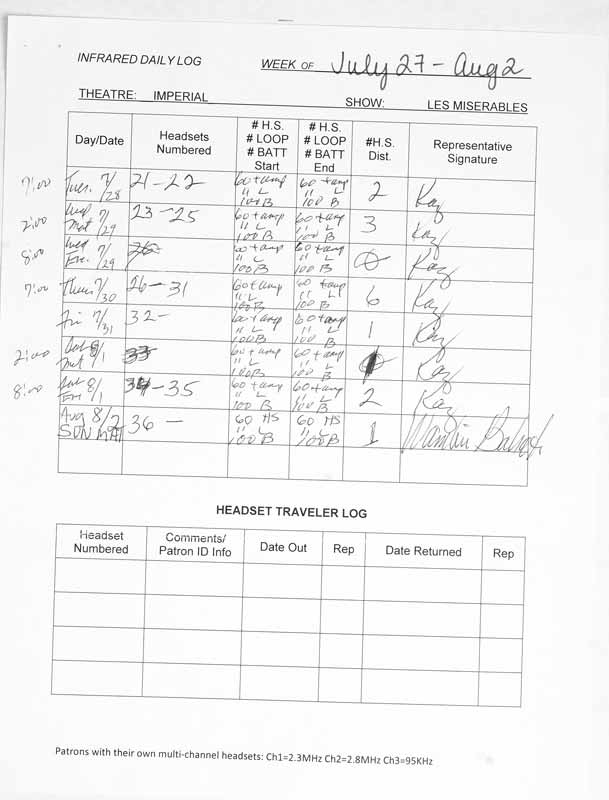 INFRARED DAILY LOG WEEK OF July 27 - Aug 2
THEATRE: IMPERIAL SHOW: LES MISERABLES
Day/Date Headsets Numbered # H.S. # LOOP # BATT Start # H.S. # LOOP # BATT End #H.S. Dist. Representative Signature
7:00 Tues. 7/28 21-22 60+amp " L 100 B 60+amp " L 100 B 2 Kay
2:00 Wed Mat 7/29 23-25 60+amp " L 100 B 60+amp " L 100 B 3 Kay
8:00 Wed 7/29 60+amp " L 100 B 60+amp " L 100 B 0 Kay
7:00 Thurs 7/30 26-31 60+amp " L 100 B 60+amp " L 100 B 6 Kay
Fri 7/31 32- 60+amp " L 100 B 60+amp " L 100 B 1 Kay
2:00 Sat Mat 8/1 33 60+amp " L 100 B 60+amp " L 100 B Kay
8:00 Sat 8/1 34-35 60+amp " L 100 B 60+amp " L 100 B 2 Kay
Aug 8/2 SUN MAT 36 - 60 HS " L 100 B 60 HS " L 100 B 1
HEADSET TRAVELER LOG
Headset Numbered Comments/ Patron ID Info Date Out Rep Date Returned Rep
Patrons with their own multi-channel headsets: Ch1=2.3MHz Ch2=2.8MHz Ch3=95KHz